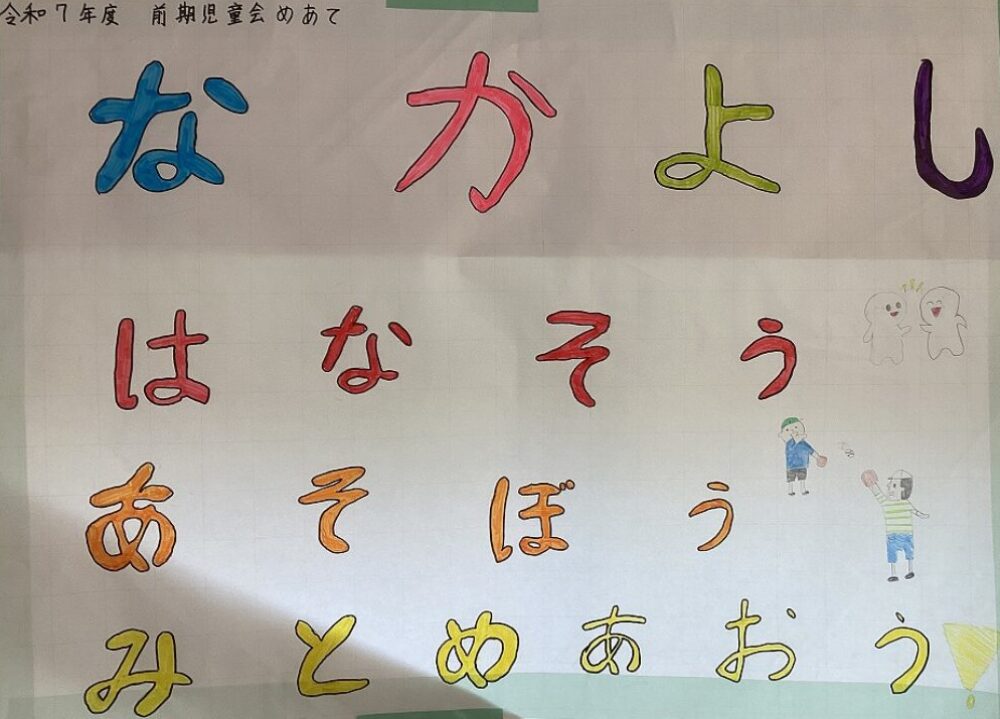 令和7年度 前期児童会めあて
なかよし
はなそう
あそぼう
みとめあおう!